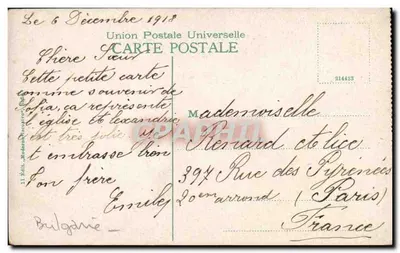 Le 6 Décembre 1918
Union Postale Universelle
CARTE POSTALE
Chère Sœur
Cette petite carte
comme souvenir de
Sofia, ça représente
l'église Alexandre
est très jolie
t embrasse bien
Ton frère
Emile
Bulgarie
Mademoiselle
Renard Alice
397 Rue des Pyrénées
20em arrond (Paris)
France